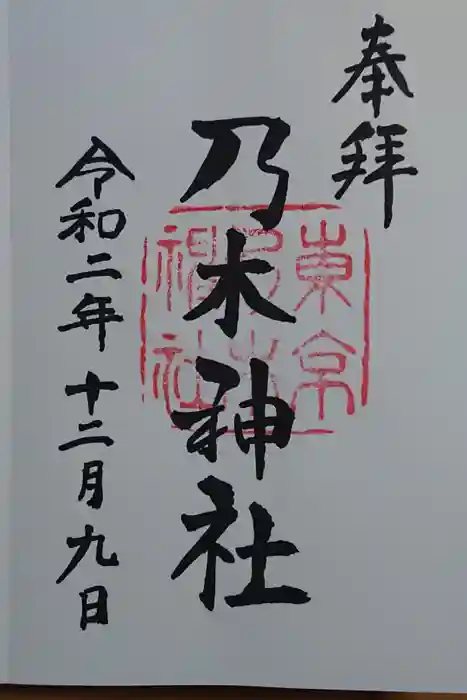 奉拝
乃木神社
東京
乃木
神社
令和二年十二月九日